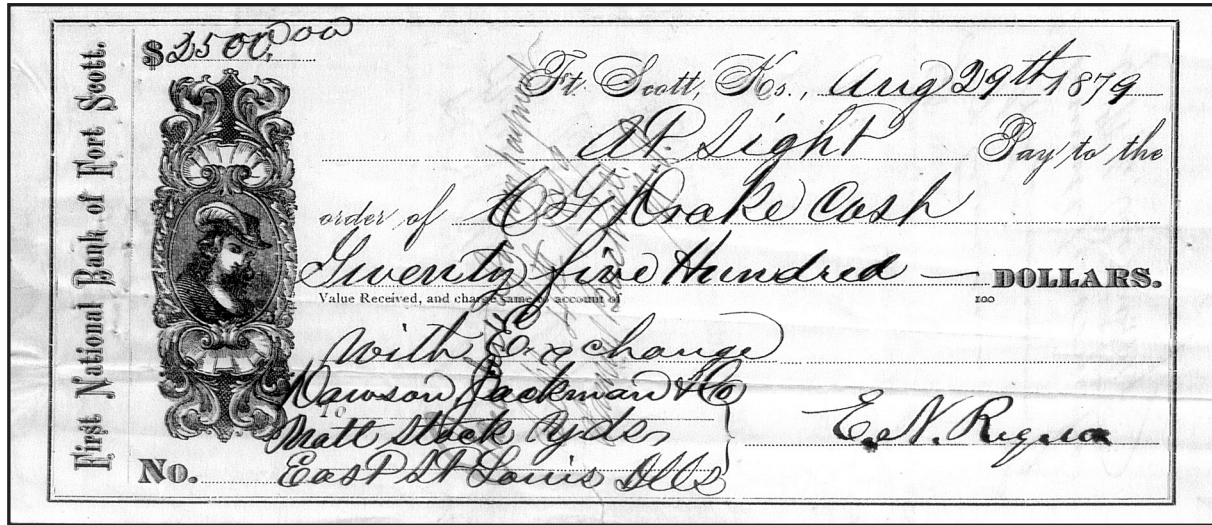 First National Bank of Fort Scott.
$ 2500.00
Ft. Scott, Ks., Aug 29th 1879
At Sight Pay to the
order of C F Drake Cash
Twenty five Hundred — DOLLARS.
Value Received, and charge same to account of 100
With Exchange
To Dawson Jackman & Co
Natl Stock Yds
East St Louis Ills
E. N.
No.